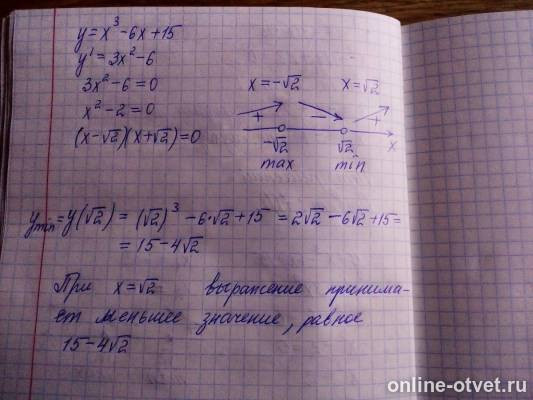 y = x³ - 6x + 15
y' = 3x² - 6
3x² - 6 = 0
x² - 2 = 0
(x - √2)(x + √2) = 0
x = -√2 x = √2
+ - +
-√2 √2 x
max min
y min = y(√2) = (√2)³ - 6·√2 + 15 = 2√2 - 6√2 + 15 =
= 15 - 4√2
При x = √2 выражение принима-
ет меньшее значение, равное
15 - 4√2
online-otvet.ru